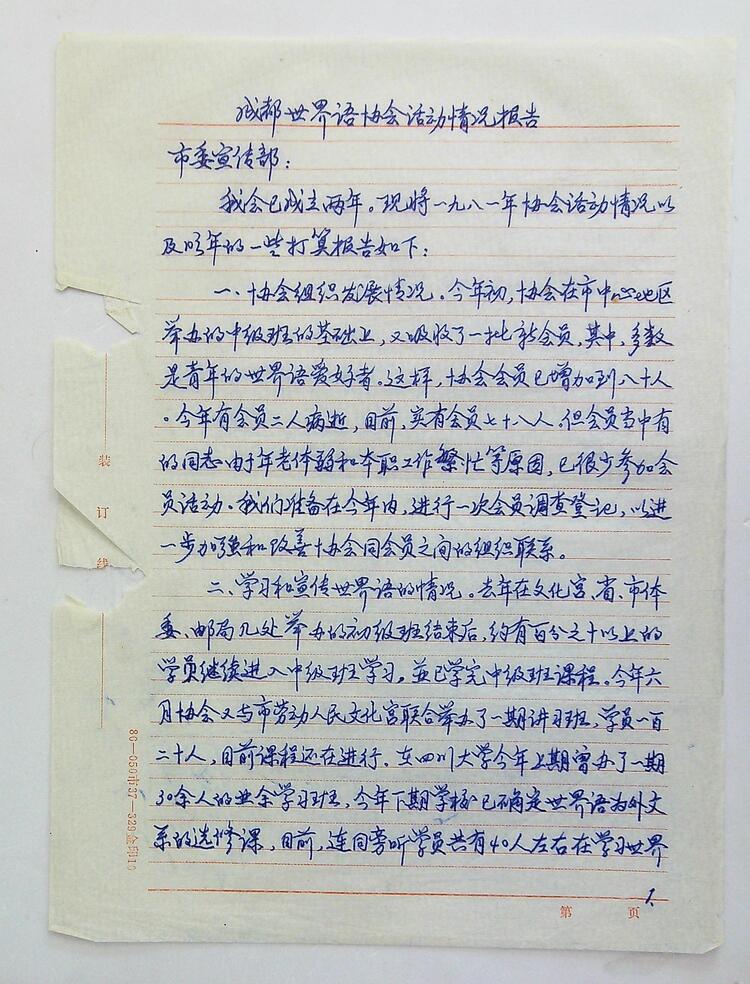 成都世界语协会活动情况报告
市委宣传部：
我会已成立两年。现将一九八一年协会活动情况以
及明年的一些打算报告如下：
一、协会组织发展情况。今年初，协会在市中区
举办的中级班的基础上，又吸收了一批新会员，其中，多数
是青年的世界语爱好者。这样，协会会员已增加到八十人
。今年有会员二人病逝，目前，实有会员七十八人。但会员当中有
的同志由于年老体弱和本职工作繁忙等原因，已很少参加会
员活动。我们准备在今年内，进行一次会员调查登记，以进
一步加强和改善协会同会员之间的组织联系。
二、学习和宣传世界语的情况。去年在文化宫、省、市体
委、邮局几处举办的初级班结束后，约有百分之十以上的
学员继续进入中级班学习，并已学完中级班课程。今年六
月协会又与市劳动人民文化宫联合举办了一期讲习班，学员一百
二十人，目前课程还在进行。在四川大学今年上期曾办了一期
30余人的业余学习班，今年下期学校已确定世界语为外文
系的选修课，目前，连同旁听学员共有40人左右在学习世界
装
订
线
80—050市37—329金印10
第 1 页